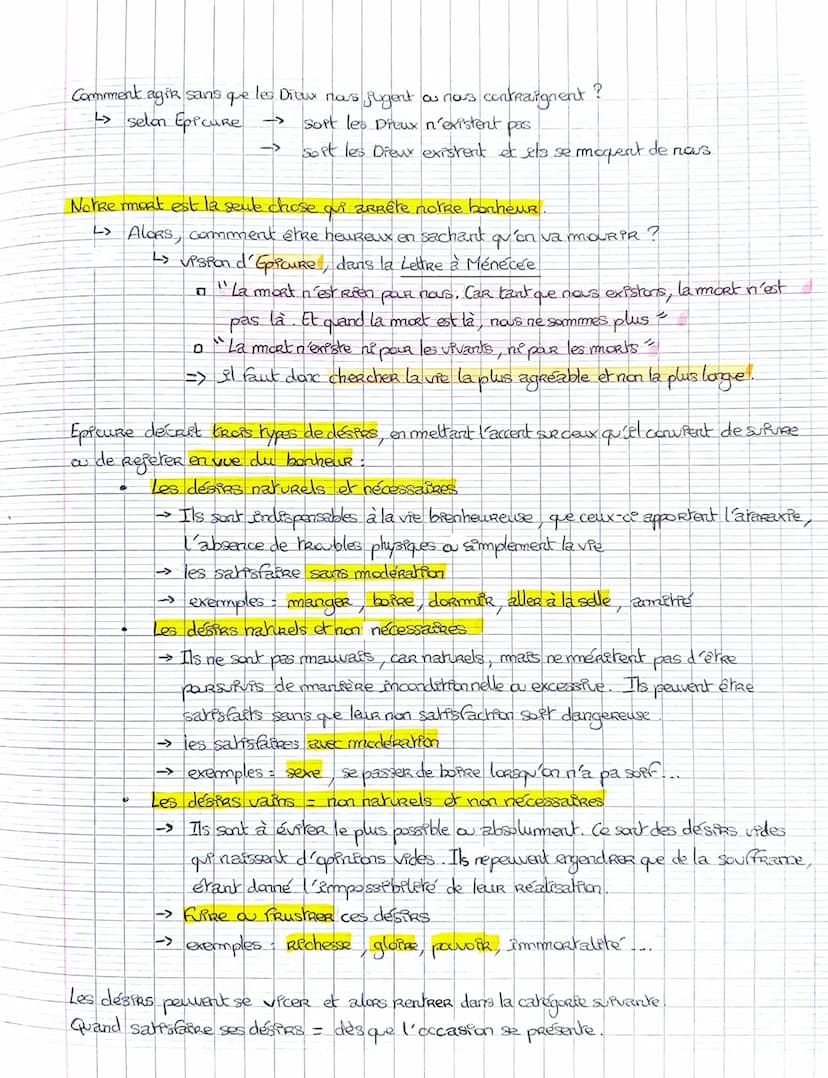 Comment agir sans que les Dieux nous jugent ou nous contraignent ?
↳ selon Epicure → soit les Dieux n'existent pas
→ soit les Dieux existent et ils se moquent de nous
Notre mort est la seule chose qui arrête notre bonheur.
↳ Alors, comment être heureux en sachant qu'on va mourir ?
↳ vision d'Epicure, dans la Lettre à Ménécée
▫ "La mort n'est rien pour nous. Car tant que nous existons, la mort n'est
pas là. Et quand la mort est là, nous ne sommes plus"
▫ "La mort n'existe ni pour les vivants, ni par les morts"
=> il faut donc chercher la vie la plus agréable et non la plus longue.
Epicure décrit trois types de désirs, en mettant l'accent sur ceux qu'il convient de suivre
ou de rejeter en vue du bonheur :
• Les désirs naturels et nécessaires
→ Ils sont indispensables à la vie bienheureuse, que ceux-ci apportent l'ataraxie,
l'absence de troubles physiques ou simplement la vie
→ les satisfaire sans modération
→ exemples : manger, boire, dormir, aller à la selle, amitié
• Les désirs naturels et non nécessaires
→ Ils ne sont pas mauvais, car naturels, mais ne méritent pas d'être
poursuivis de manière inconditionnelle ou excessive. Ils peuvent être
satisfaits sans que leur non satisfaction soit dangereuse.
→ les satisfaires avec modération
→ exemples : sexe, se passer de boire lorsqu'on n'a pa soif...
• Les désirs vains = non naturels et non nécessaires
→ Ils sont à éviter le plus possible ou absolument. Ce sont des désirs vides
qui naissent d'opinions vides. Ils ne peuvent engendrer que de la souffrance,
étant donné l'impossibilité de leur réalisation.
→ Fuire ou frustrer ces désirs
→ exemples : richesse, gloire, pouvoir, immortalité...
Les désirs peuvent se vicer et alors rentrer dans la catégorie suivante.
Quand satisfaire ses désirs = dès que l'occasion se présente.